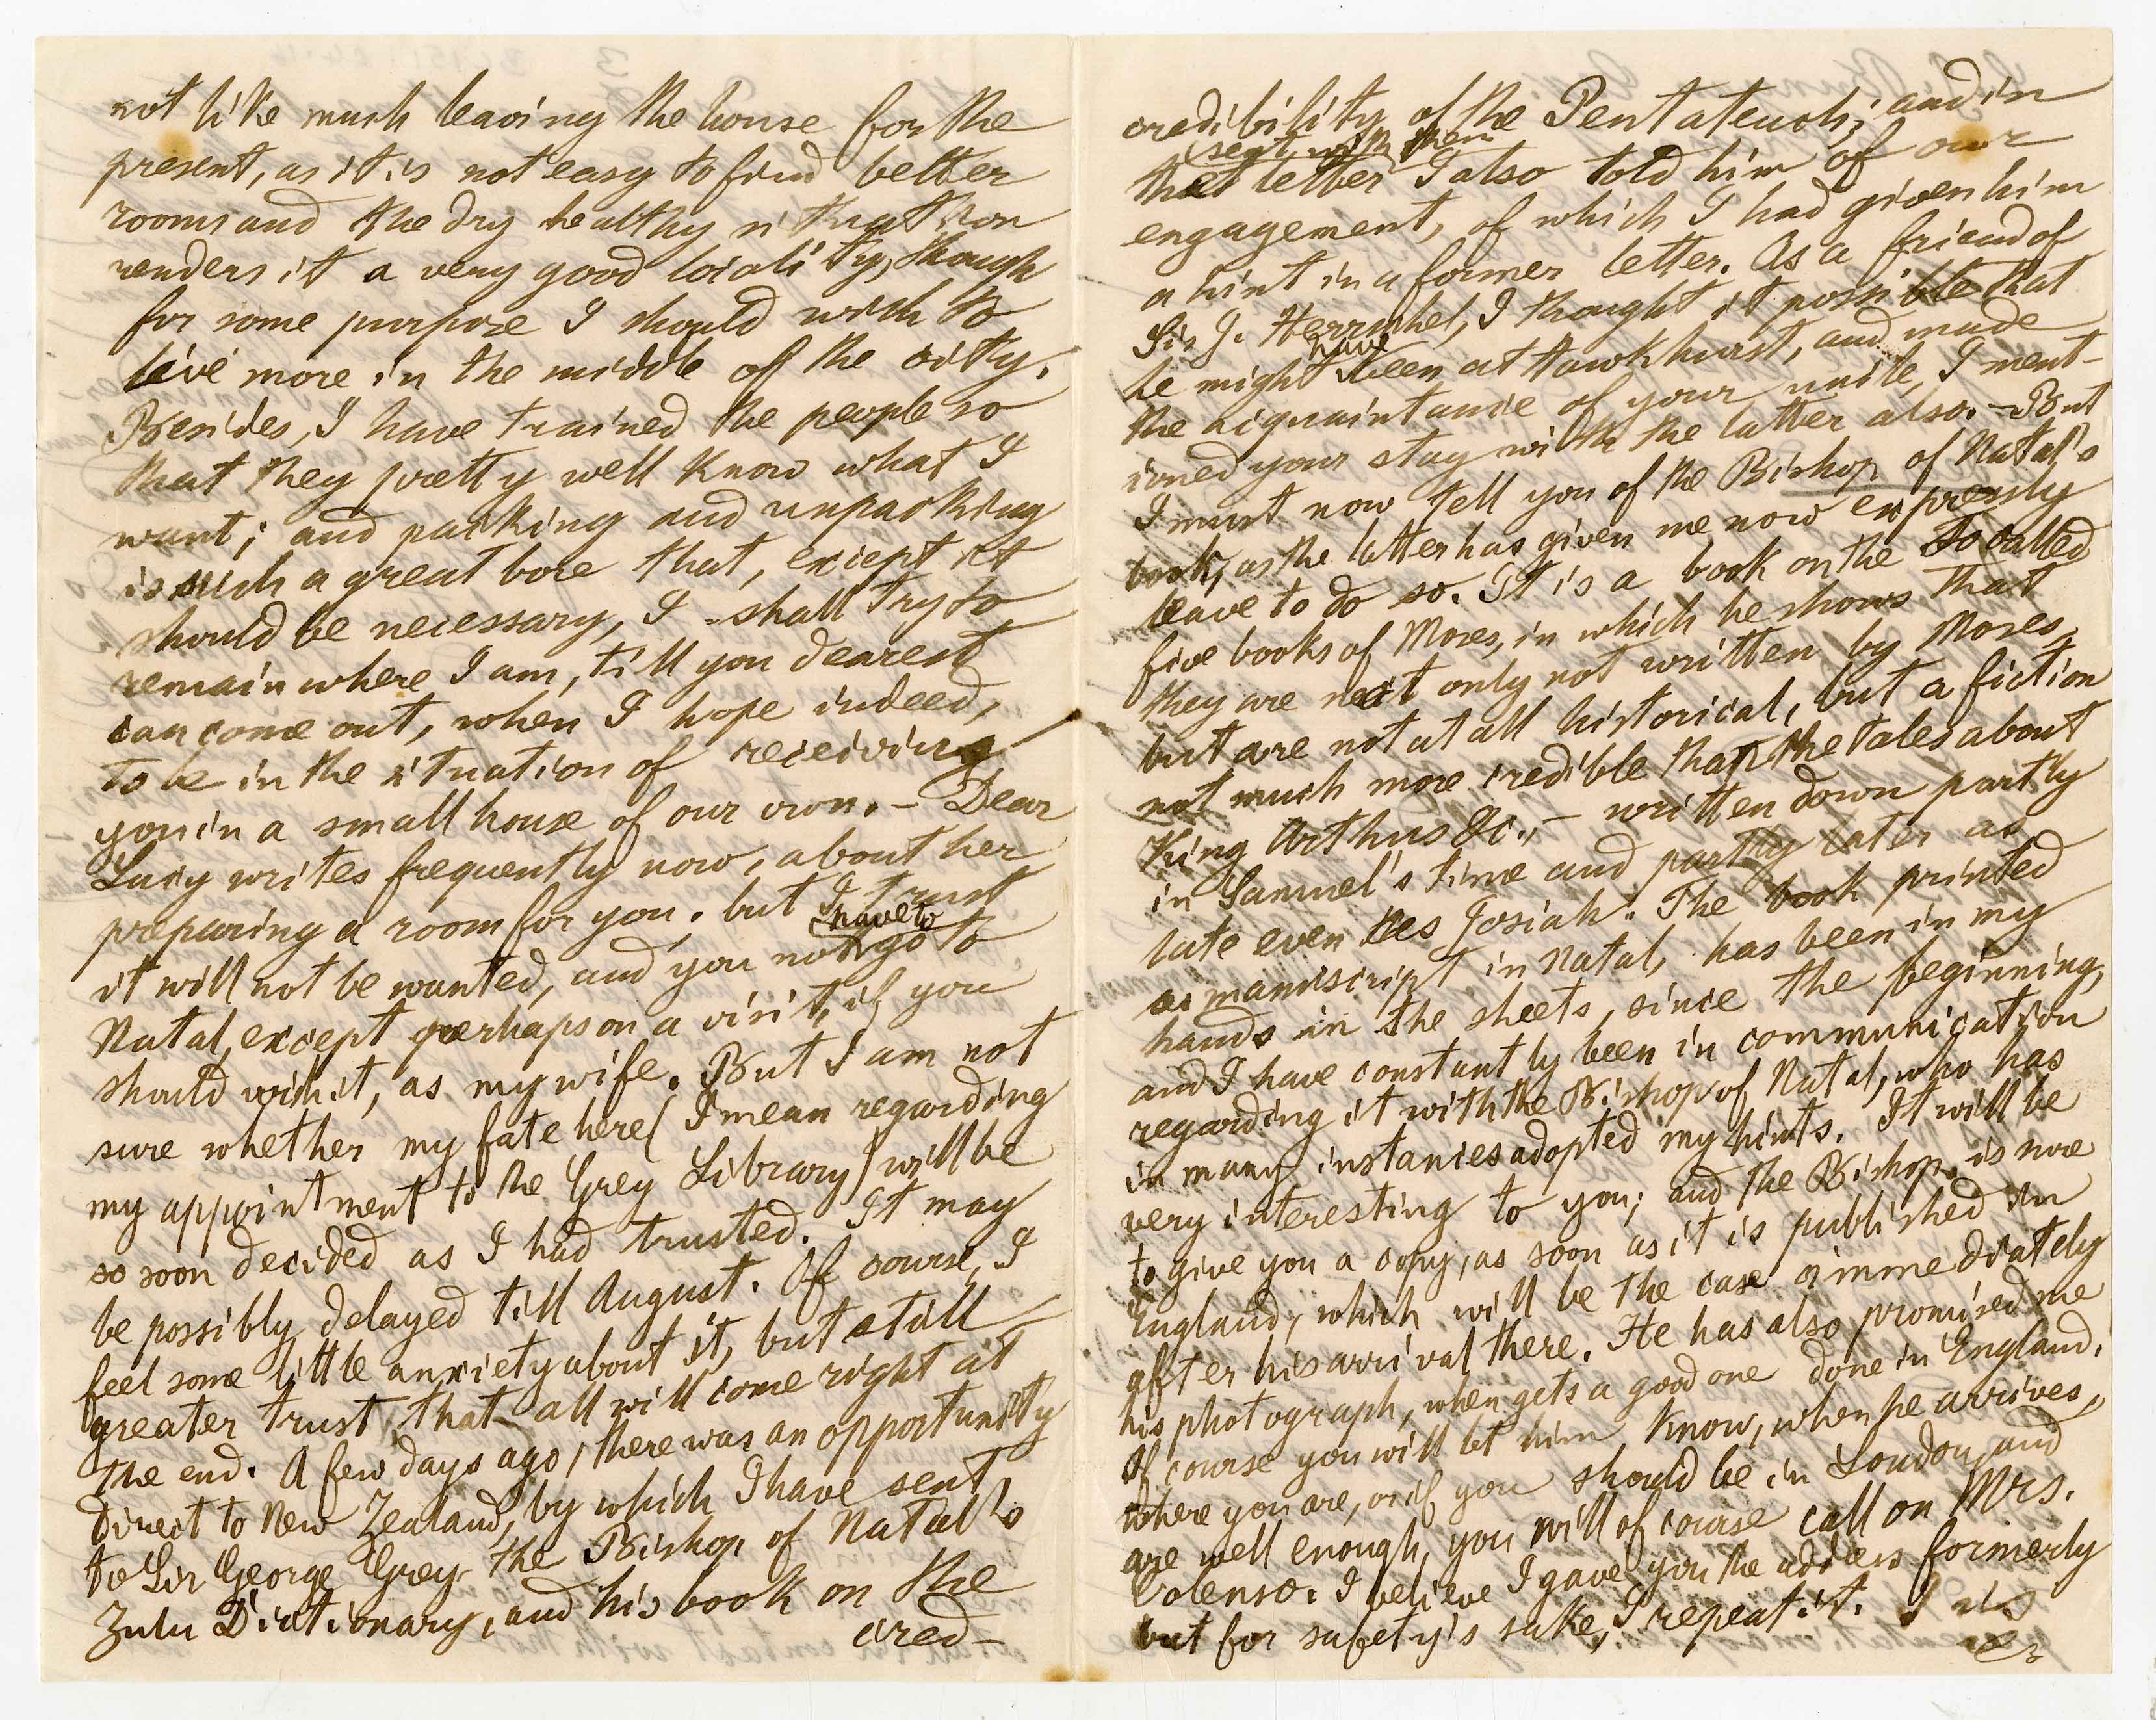 not like much leaving the house for the
present, as it is not easy to find better
rooms and the dry healthy situation
renders it a very good locality, though
for some purpose I should wish to
live more in the middle of the city.
Besides, I have trained the people so
that they pretty well know what I
want; and packing and unpacking
is such a great bore that, except it
should be necessary, I shall try to
remain where I am, till you dearest
can come out, when I hope indeed,
to be in the situation of receiving
you in a small house of our own. – Dear
Lucy writes frequently now, about her
preparing a room for you, but I trust
it will not be wanted, and you not have to go to
Natal, except perhaps on a visit, if you
should wish it, as my wife. But I am not
sure whether my fate here (I mean regarding
my appointment to the Grey Library) will be
so soon decided as I had trusted. It may
be possibly delayed till August. Of course, I
feel some little anxiety about it, but still
greater trust, that all will come right at
the end. A few days ago, there was an opportunity
direct to New Zealand, by which I have sent
to Sir George Grey the Bishop of Natal's
Zulu Dictionary, and his book on the
cred-
credibility of the Pentateuch; and in
the letter sent with them I also told him of our
engagement, of which I had given him
a hint in a former letter. As a friend of
Sir J. Herrschel, I thought it possible that
he might have been at Hawkhurst, and made
the acquaintance of your uncle, I ment-
ioned your stay with the latter also. – But
I must now tell you of the Bishop of Natal's
book, as the latter has given me now expressly
leave to do so. It is a book on the so called
five books of Moses, in which he shows that
they are not only not written by Moses,
but are not at all historical, but a fiction
not much more credible than the tales about
King Arthus &c., – written down partly
in Samuel's time and partly later as
late even as Josiah. The book printed
as manuscript in Natal, has been in my
hands in the sheets, since the beginning,
and I have constantly been in communication
regarding it with the Bishop of Natal, who has
in many instances adopted my hints. It will be
very interesting to you; and the Bishop is sure
to give you a copy, as soon as it is published in
England, which will be the case immediately
after his arrival there. He has also promised me
his photograph, when gets a good one done in England.
Of course you will let him know, when he arrives,
where you are, or if you should be in London, and
are well enough, you will of course call on Mrs.
Colenso. I believe I gave you the address formerly
but for safety's sake, I repeat it. I